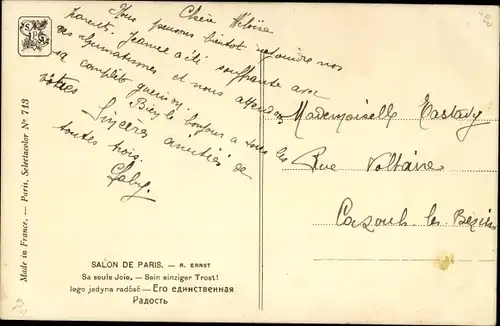 Chère Héloïse
Nous pensons bientôt rejoindre nos
parents. Jeanne a été souffrante avec
ses rhumatismes et nous attendons
sa complète guérison.
Bien le bonjour à tous les
vôtres
Sincères amitiés de
toutes trois.
Gaby.
Mademoiselle
Rue Voltaire
Cazouls les Béziers
Made in France. — Paris, Selectacolor No 713
SALON DE PARIS. — R. ERNST
Sa seule Joie. — Sein einziger Trost!
Iego jedyna radość — Его единственная
Радость